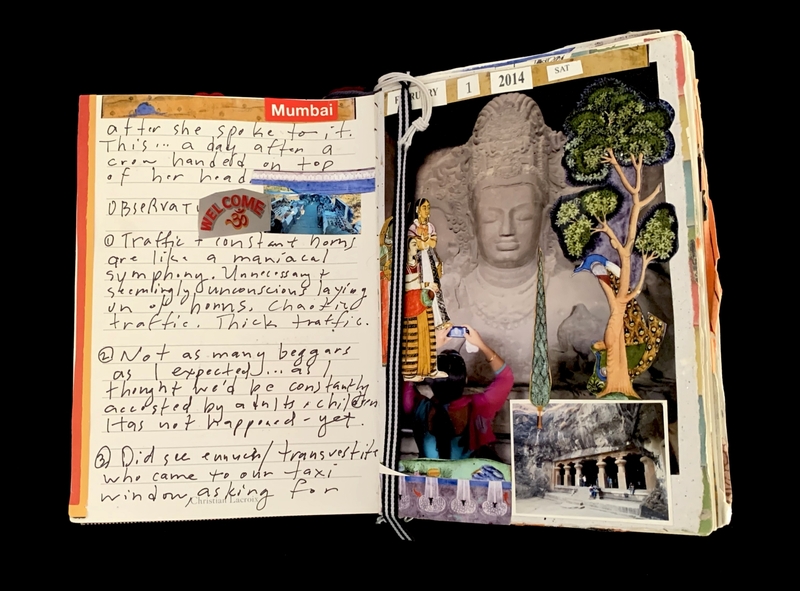 Mumbai
after she spoke to it.
This... a day after a
crow landed on top
of her head
OBSERVATI
WELCOME
ॐ
① Traffic + constant horns
are like a maniacal
symphony. Unnecessary +
seemingly unconscious laying
on of horns. Chaotic
traffic. Thick traffic.
② Not as many beggars
as I expected... as I
thought we'd be constantly
accosted by adults + children
Has not happened - yet.
③ Did see eunuch/transvestite
who came to our taxi
window, asking for
Christian Lacroix
1 2014 SAT